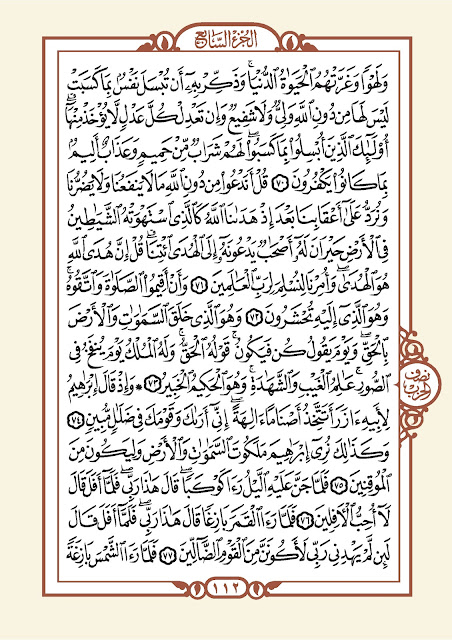 الجزء السابع
وَلَهْوًا وَغَرَّتْهُمُ ٱلْحَيَوٰةُ ٱلدُّنْيَا ۚ وَذَكِّرْ بِهِۦٓ أَن تُبْسَلَ نَفْسٌۢ بِمَا كَسَبَتْ
لَيْسَ لَهَا مِن دُونِ ٱللَّهِ وَلِيٌّ وَلَا شَفِيعٌ وَإِن تَعْدِلْ كُلَّ عَدْلٍ لَّا يُؤْخَذْ مِنْهَآ ۗ
أُو۟لَٰٓئِكَ ٱلَّذِينَ أُبْسِلُوا۟ بِمَا كَسَبُوا۟ ۖ لَهُمْ شَرَابٌ مِّنْ حَمِيمٍ وَعَذَابٌ أَلِيمٌۢ
بِمَا كَانُوا۟ يَكْفُرُونَ ٧٠ قُلْ أَنَدْعُوا۟ مِن دُونِ ٱللَّهِ مَا لَا يَنفَعُنَا وَلَا يَضُرُّنَا
وَنُرَدُّ عَلَىٰٓ أَعْقَابِنَا بَعْدَ إِذْ هَدَىٰنَا ٱللَّهُ كَٱلَّذِى ٱسْتَهْوَتْهُ ٱلشَّيَٰطِينُ
فِى ٱلْأَرْضِ حَيْرَانَ لَهُۥٓ أَصْحَٰبٌ يَدْعُونَهُۥٓ إِلَى ٱلْهُدَى ٱئْتِنَا ۗ قُلْ إِنَّ هُدَى ٱللَّهِ
هُوَ ٱلْهُدَىٰ ۖ وَأُمِرْنَا لِنُسْلِمَ لِرَبِّ ٱلْعَٰلَمِينَ ٧١ وَأَنْ أَقِيمُوا۟ ٱلصَّلَوٰةَ وَٱتَّقُوهُ ۚ
وَهُوَ ٱلَّذِىٓ إِلَيْهِ تُحْشَرُونَ ٧٢ وَهُوَ ٱلَّذِى خَلَقَ ٱلسَّمَٰوَٰتِ وَٱلْأَرْضَ
بِٱلْحَقِّ ۖ وَيَوْمَ يَقُولُ كُن فَيَكُونُ ۚ قَوْلُهُ ٱلْحَقُّ ۚ وَلَهُ ٱلْمُلْكُ يَوْمَ يُنفَخُ فِى
ٱلصُّورِ ۚ عَٰلِمُ ٱلْغَيْبِ وَٱلشَّهَٰدَةِ ۚ وَهُوَ ٱلْحَكِيمُ ٱلْخَبِيرُ ٧٣ ۞ وَإِذْ قَالَ إِبْرَٰهِيمُ
نصف الحزب
لِأَبِيهِ ءَازَرَ أَتَتَّخِذُ أَصْنَامًا ءَالِهَةً ۖ إِنِّىٓ أَرَىٰكَ وَقَوْمَكَ فِى ضَلَٰلٍ مُّبِينٍ ٧٤
وَكَذَٰلِكَ نُرِىٓ إِبْرَٰهِيمَ مَلَكُوتَ ٱلسَّمَٰوَٰتِ وَٱلْأَرْضِ وَلِيَكُونَ مِنَ
ٱلْمُوقِنِينَ ٧٥ فَلَمَّا جَنَّ عَلَيْهِ ٱلَّيْلُ رَءَا كَوْكَبًا ۖ قَالَ هَٰذَا رَبِّى ۖ فَلَمَّآ أَفَلَ قَالَ
لَآ أُحِبُّ ٱلْءَافِلِينَ ٧٦ فَلَمَّا رَءَا ٱلْقَمَرَ بَازِغًا قَالَ هَٰذَا رَبِّى ۖ فَلَمَّآ أَفَلَ قَالَ
لَئِن لَّمْ يَهْدِنِى رَبِّى لَأَكُونَنَّ مِنَ ٱلْقَوْمِ ٱلضَّآلِّينَ ٧٧ فَلَمَّا رَءَا ٱلشَّمْسَ بَازِغَةً
١١٢